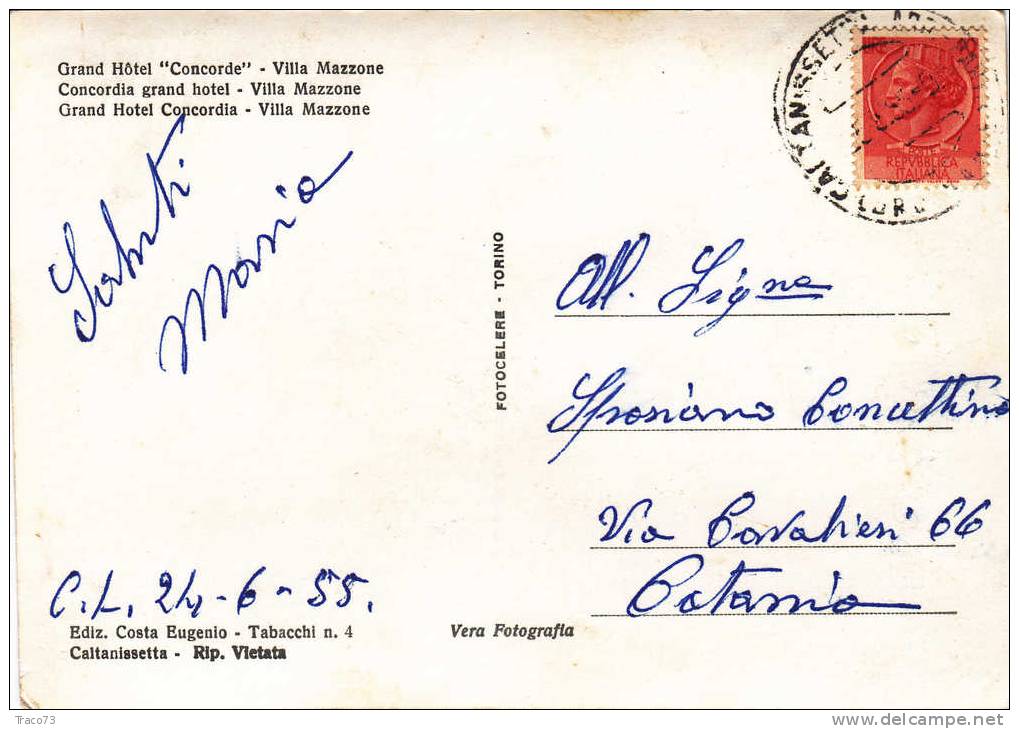 Grand Hôtel "Concorde" - Villa Mazzone
Concordia grand hotel - Villa Mazzone
Grand Hotel Concordia - Villa Mazzone
Saluti
Maria
C.L. 24-6-55.
Ediz. Costa Eugenio - Tabacchi n. 4
Caltanissetta - Rip. Vietata
Vera Fotografia
FOTOCELERE - TORINO
CALTANISSETTA
POSTE
REPVBBLICA
ITALIANA
All. Signa
Concettina
Via Cavalieri 66
Catania
Traco73
delcampe.net